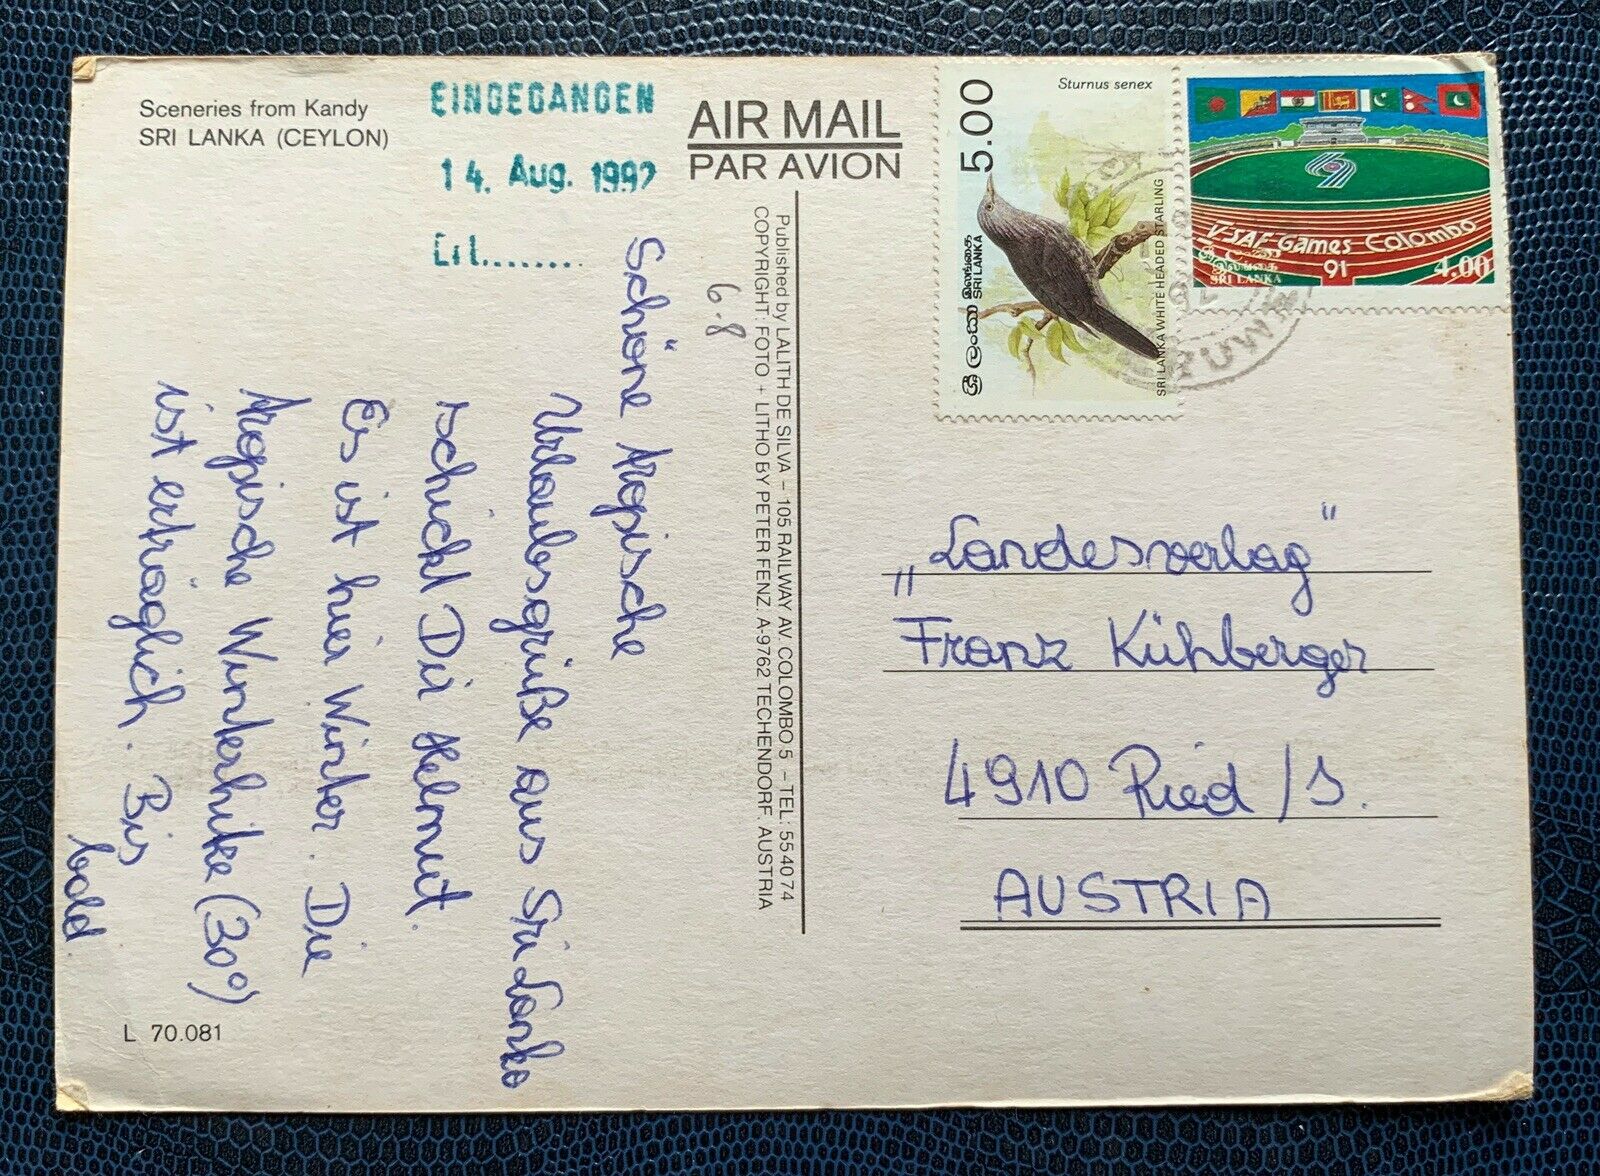 Sceneries from Kandy
SRI LANKA (CEYLON)
EINGEGANGEN
14. Aug. 1992
Erl.........
AIR MAIL
PAR AVION
Sturnus senex
5.00
ශ්‍රී ලංකා இலங்கை SRI LANKA
SRI LANKA WHITE HEADED STARLING
V-SAF Games Colombo
91
ශ්‍රී ලංකා
இலங்கை
SRI LANKA
4.00
6.8
Schöne tropische
Urlaubsgrüße aus Sri Lanka
schickt Dir Helmut.
Es ist hier Winter. Die
tropische Winterhitze (30°)
ist erträglich. Bis
bald.
Published by LALITH DE SILVA – 105 RAILWAY AV. COLOMBO 5 – TEL: 554074
COPYRIGHT: FOTO + LITHO BY PETER FENZ. A-9762 TECHENDORF. AUSTRIA
„Landesverlag“
Franz Kühberger
4910 Ried / I.
AUSTRIA
L 70.081